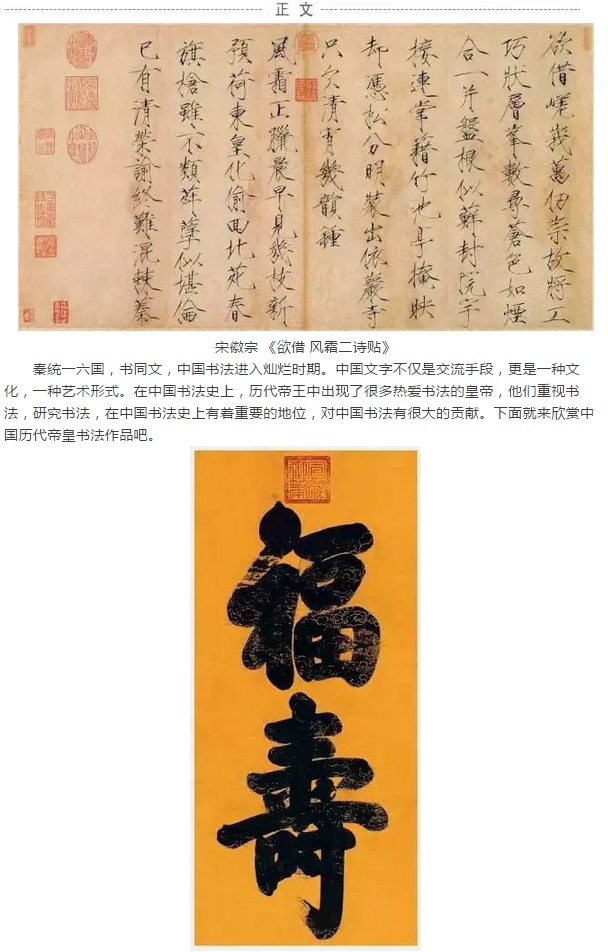 正 文
欲借嵯峩萬仞崇故將工
巧狀層峯數尋蒼色如煙
合一片盤根似蘚封院宇
接連常藉竹池亭掩映
却憑松分明裝出依巖寺
只欠清宵幾韻鍾
風霜正臘晨早見幾枝新
預荷東皇化偷回北苑春
旗槍雖不類荈孽似堪倫
已有清榮諭終難混棘蓁
宋徽宗 《欲借 风霜二诗贴》
秦统一六国，书同文，中国书法进入灿烂时期。中国文字不仅是交流手段，更是一种文
化，一种艺术形式。在中国书法史上，历代帝王中出现了很多热爱书法的皇帝，他们重视书
法，研究书法，在中国书法史上有着重要的地位，对中国书法有很大的贡献。下面就来欣赏中
国历代帝皇书法作品吧。
福
壽